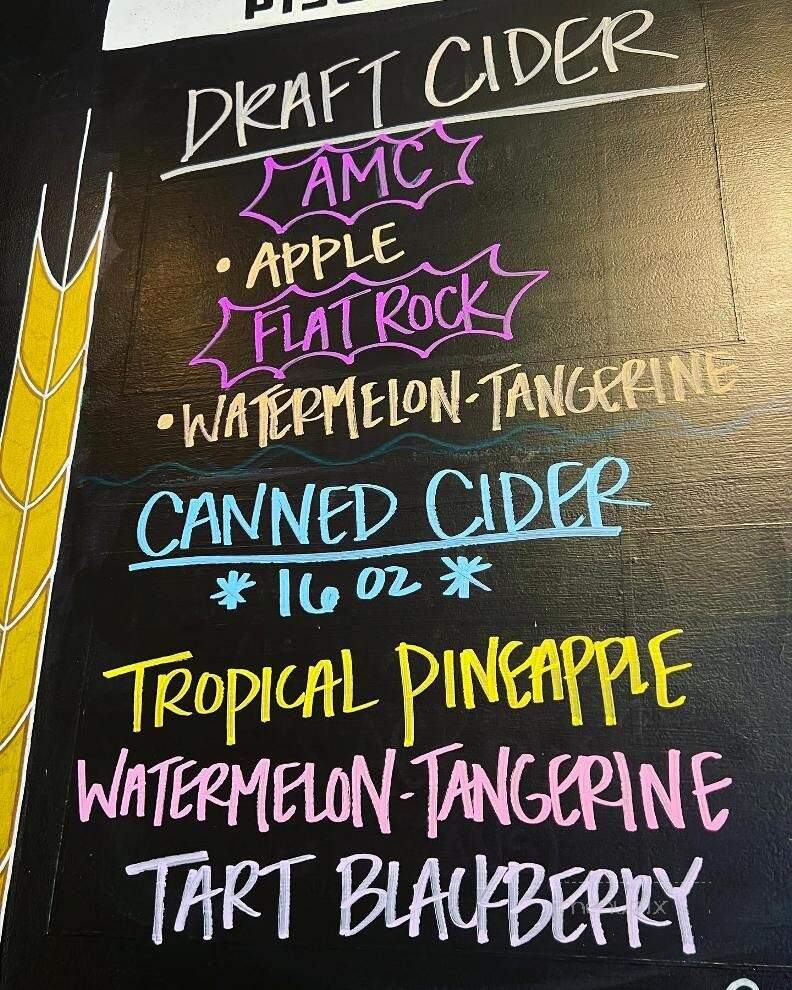 DRAFT CIDER
AMC
• APPLE
FLAT ROCK
• WATERMELON-TANGERINE
CANNED CIDER
* 16 OZ *
TROPICAL PINEAPPLE
WATERMELON-TANGERINE
TART BLACKBERRY